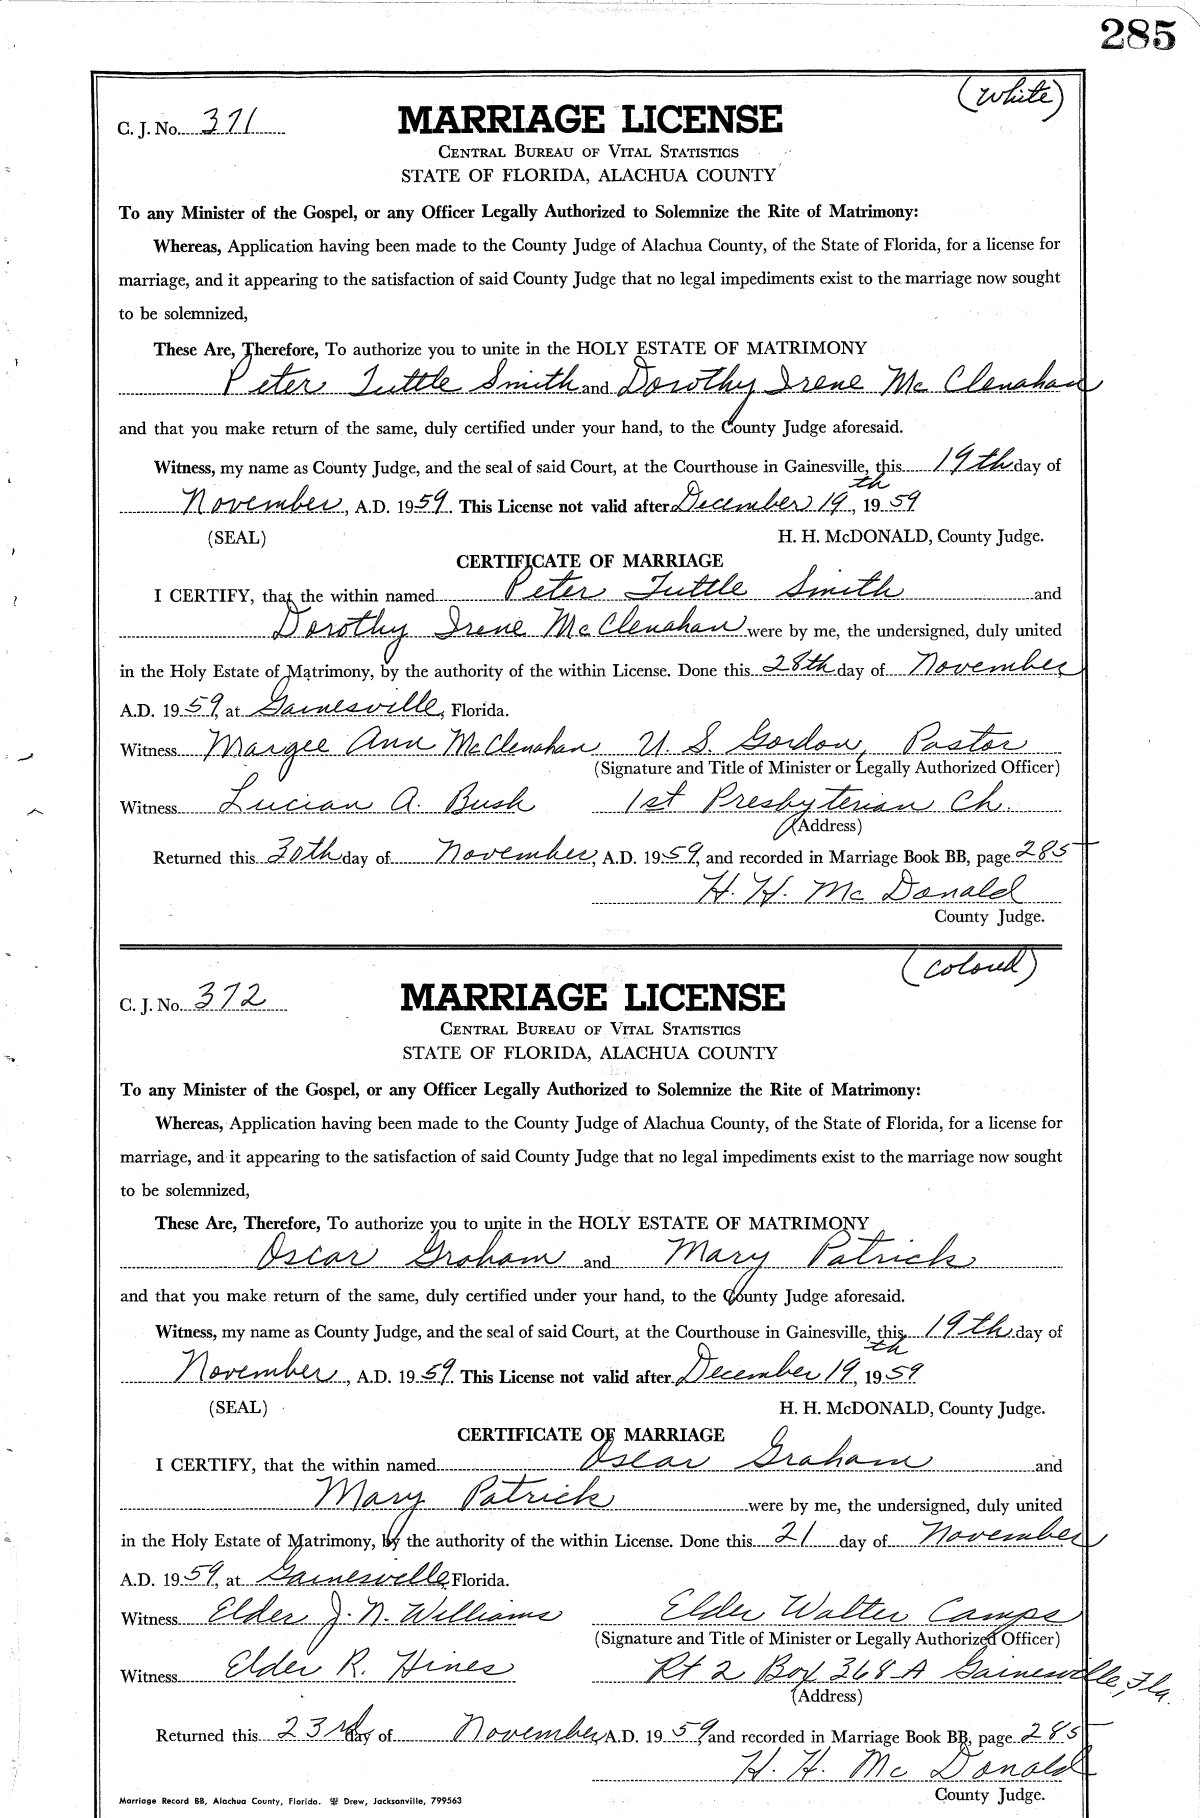 285
(White)
C. J. No. 371
MARRIAGE LICENSE
CENTRAL BUREAU OF VITAL STATISTICS
STATE OF FLORIDA, ALACHUA COUNTY
To any Minister of the Gospel, or any Officer Legally Authorized to Solemnize the Rite of Matrimony:
Whereas, Application having been made to the County Judge of Alachua County, of the State of Florida, for a license for
marriage, and it appearing to the satisfaction of said County Judge that no legal impediments exist to the marriage now sought
to be solemnized,
These Are, Therefore, To authorize you to unite in the HOLY ESTATE OF MATRIMONY
Peter Tuttle Smith and Dorothy Irene McClenahan
and that you make return of the same, duly certified under your hand, to the County Judge aforesaid.
Witness, my name as County Judge, and the seal of said Court, at the Courthouse in Gainesville, this 19th day of
November, A.D. 1959. This License not valid after December 19th, 1959
(SEAL) H. H. McDONALD, County Judge.
CERTIFICATE OF MARRIAGE
I CERTIFY, that the within named Peter Tuttle Smith and
Dorothy Irene McClenahan were by me, the undersigned, duly united
in the Holy Estate of Matrimony, by the authority of the within License. Done this 28th day of November
A.D. 1959, at Gainesville, Florida.
Witness Margee Ann McClenahan U. S. Gordon, Pastor
(Signature and Title of Minister or Legally Authorized Officer)
Witness Lucian A. Bush 1st Presbyterian Ch.
(Address)
Returned this 30th day of November, A.D. 1959, and recorded in Marriage Book BB, page 285
H. H. McDonald
County Judge.
(Colored)
C. J. No. 372
MARRIAGE LICENSE
CENTRAL BUREAU OF VITAL STATISTICS
STATE OF FLORIDA, ALACHUA COUNTY
To any Minister of the Gospel, or any Officer Legally Authorized to Solemnize the Rite of Matrimony:
Whereas, Application having been made to the County Judge of Alachua County, of the State of Florida, for a license for
marriage, and it appearing to the satisfaction of said County Judge that no legal impediments exist to the marriage now sought
to be solemnized,
These Are, Therefore, To authorize you to unite in the HOLY ESTATE OF MATRIMONY
Oscar Graham and Mary Patrick
and that you make return of the same, duly certified under your hand, to the County Judge aforesaid.
Witness, my name as County Judge, and the seal of said Court, at the Courthouse in Gainesville, this 19th day of
November, A.D. 1959. This License not valid after December 19th, 1959
(SEAL) H. H. McDONALD, County Judge.
CERTIFICATE OF MARRIAGE
I CERTIFY, that the within named Oscar Graham and
Mary Patrick were by me, the undersigned, duly united
in the Holy Estate of Matrimony, by the authority of the within License. Done this 21 day of November
A.D. 1959, at Gainesville, Florida.
Witness Elder J. N. Williams Elder Walter Camps
(Signature and Title of Minister or Legally Authorized Officer)
Witness Elder R. Hines Rt 2 Box 368-A Gainesville, Fla.
(Address)
Returned this 23rd day of November, A.D. 1959, and recorded in Marriage Book BB, page 285
H. H. McDonald
County Judge.
Marriage Record BB, Alachua County, Florida. Drew, Jacksonville, 799563